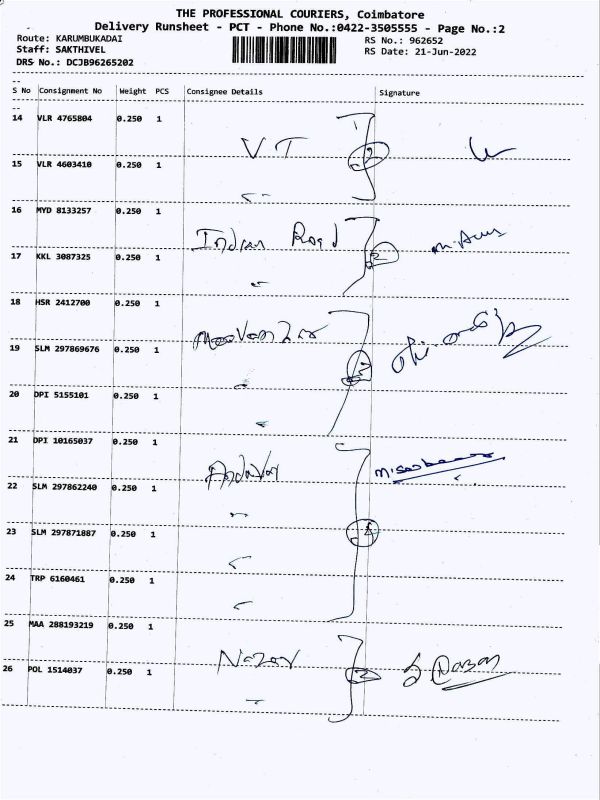 THE PROFESSIONAL COURIERS, Coimbatore
Delivery Runsheet - PCT - Phone No.:0422-3505555 - Page No.:2
Route: KARUMBUKADAI
Staff: SAKTHIVEL
DRS No.: DCJB96265202
RS No.: 962652
RS Date: 21-Jun-2022
S No Consignment No Weight PCS Consignee Details Signature
14 VLR 4765804 0.250 1
V T 2
15 VLR 4603410 0.250 1
16 MYD 8133257 0.250 1
Indian Road 2
17 KKL 3087325 0.250 1
18 HSR 2412700 0.250 1
19 SLM 297869676 0.250 1
3
20 DPI 5155101 0.250 1
21 DPI 10165037 0.250 1
22 SLM 297862240 0.250 1
23 SLM 297871887 0.250 1
4
24 TRP 6160461 0.250 1
25 MAA 288193219 0.250 1
Nazar 2
26 POL 1514037 0.250 1